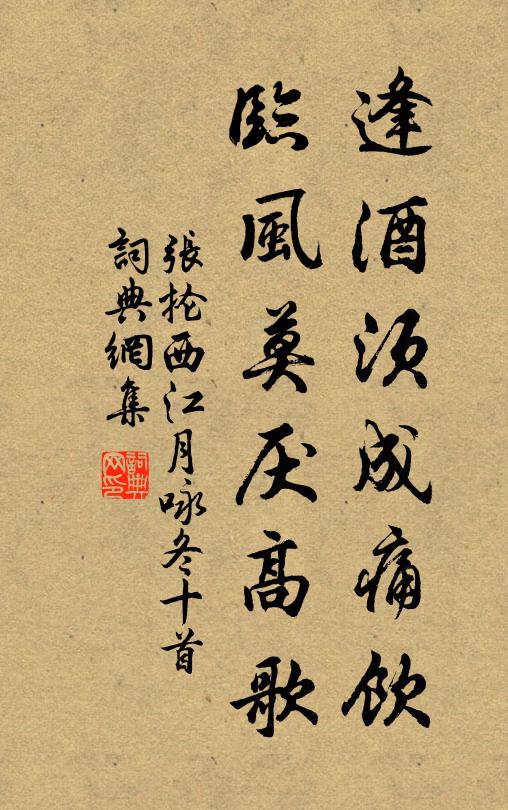 逢酒须成痛饮
临風莫厌高歌
張抡西江月咏冬十首
詞典網集
詞典网印